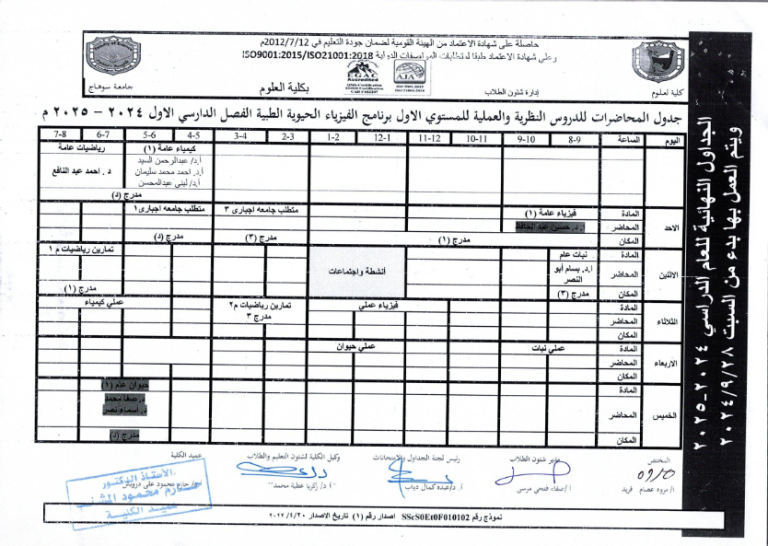 حاصلة على شهادة الاعتماد من الهيئة القومية لضمان جودة التعليم في 2012/7/12م
وعلى شهادة الاعتماد طبقا لمتطلبات المواصفات الدولية ISO9001:2015/ISO21001:2018
جامعة سوهاج
بكلية العلوم
EGAC
Accredited
AJA
إدارة شئون الطلاب
كلية العلوم
جدول المحاضرات للدروس النظرية والعملية للمستوي الاول برنامج الفيزياء الحيوية الطبية الفصل الدارسي الاول ٢٠٢٤ – ٢٠٢٥ م
اليوم الساعة 8-9 9-10 10-11 11-12 12-1 1-2 2-3 3-4 4-5 5-6 6-7 7-8
كيمياء عامة (١) رياضيات عامة
أ.د/ عبدالرحمن السيد
أ.د. احمد محمد سليمان د. احمد عبد النافع
أ.د/ لبنى عبدالمحسن
مدرج (د)
الاحد
المادة فيزياء عامة (١) متطلب جامعه اجباري ٣ متطلب جامعه اجبارى ١
المحاضر
المكان مدرج (١) مدرج (٣) مدرج (د)
الاثنين
المادة نبات عام أنشطة واجتماعات تمارين رياضيات م ١
المحاضر أ.د. بسام أبو النصر
المكان مدرج (٣) مدرج (١)
الثلاثاء
المادة فيزياء عملي تمارين رياضيات م٢ عملي كيمياء
المحاضر مدرج ٣
المكان
الاربعاء
المادة عملي نبات عملي حيوان
المحاضر
المكان
الخميس
المادة حيوان عام (١)
المحاضر د. صفا محمد
د. أسماء نصر
المكان مدرج (د)
المختص
أ/ مروه عصام فريد
مدير شئون الطلاب
أ/ صفاء فتحي مرسى
رئيس لجنة الجداول والامتحانات
أ.د/عبده كمال دياب
وكيل الكلية لشئون التعليم والطلاب
أ.د/ زكريا عطية محمد
عميد الكلية
الاستاذ الدكتور
عميد الكلية
نموذج رقم SScS0Et0F010102 اصدار رقم (١) تاريخ الاصدار ٢٠٢٢/٤/٣٠
الجداول النهائية للعام الدراسي ٢٠٢٤-٢٠٢٥
ويتم العمل بها بدء من السبت ٢٠٢٤/٩/٢٨